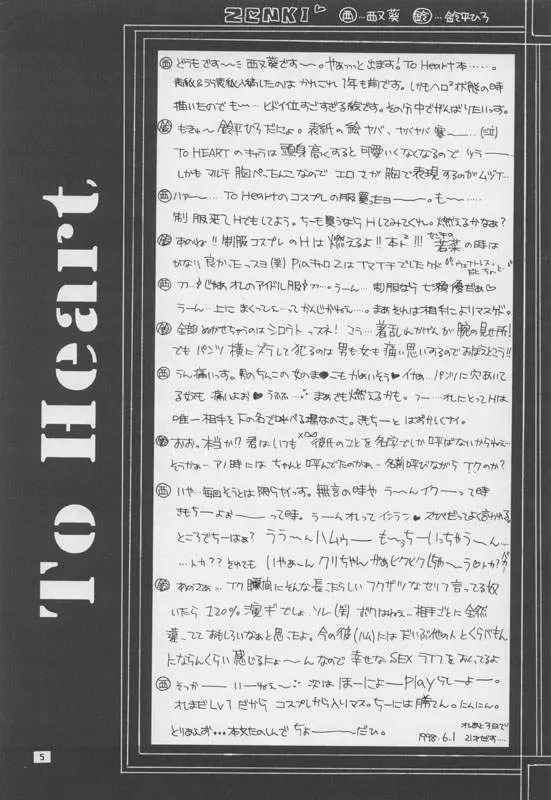 ZENKI♡ 西…西又葵 鈴…鈴平ひろ
西 どうもです〜ミ 西又葵です〜。やぁっっと出ます! To Heart本……。
表紙&ラフ表紙入稿したのは かれこれ 1年も前です。しかもヘロ²状態の時
描いたのでも〜… ヒドイ位すごすぎる絵です。その分中でがんばりたいっす。
鈴 もきゅ〜 鈴平ひろだにょ。表紙の絵 ヤバ、ヤバヤバ 寒〜…
TO HEARTのキャラは 頭身高くすると可愛いくなくなるので ツラ——
しかもマルチ 胸ぺったんこなので エロさが胸で表現するのがムヅイ…
西 ハァ〜… To Heartのコスプレの服買ったョー。も〜…
制服来てHでもしてよう。ちーも買うなら Hしてみてくれ。燃えるかなぁ?
鈴 あのね!!制服コスプレのHは燃えるよ!!本ト²!!! 若菜の時は
かなり良かったっスョ(笑) Piaキャロ2はイマイチでしたケド
西 オレのアイドル服 うーん…制服なら七瀬優だぁ♡
うーん…上にまくって…ってかんじかねェ…。まぁそれは相手によりマスケド。
鈴 全部ぬがせちゃうのはシロウトっスネ! コラ…着乱しかげんが腕の見せ所!
でもパンツ横にズラして犯るのは男も女も痛い思いするのでおぼえとこう!!
西 うん痛いっす。男のちんこの 女のま♥こもかわいそう♥イヤぁ…パンツに穴あいて
るなも 痛いよぉ♥うふふ… まぁさも燃えるかも。つー…オレにとってHは
唯一相手を下の名で呼べる場なのさ。きもちーと はずかしくナイ。
鈴 おお。本当か!? 君はいつも 彼氏のことを名字でしか呼ばないからねェ
そうかぁ…アノ時には ちゃんと呼んでたのかぁ… 名前呼びながら イクのか?
西 いや…毎回そうとは限らないっす。無言の時や う〜んイク——って時
きもち〜よぉ——って時。う〜んオレってインラン♥スケベだってよく言われる
ところでちーはぁ? ララ〜んハムゥー も〜っちーいっちゃう〜ん…
…トカ?? それでも いやぁ〜ん クリちゃんがぁヒクヒクしちゃ〜う(はぁと)トカ?
鈴 あのさぁ… イク瞬間にそんな長ったらしいフクザツなセリフ言ってる奴
いたら 120%。演ギでしょ、ソレ(笑) ボクはねェ…相手ごとに全然
違ってておもしろいなぁと思ったよ。今の彼(ハム)にはだいぶ他の人とくらべもん
にならんくらい感じるにょ〜んなので 幸せなSEXライフをおくってるよ
西 そっか—— い〜ねェ〜 次はほーにょ—playらしーよー。
オレまだLv1だから コスプレから入りマス。ちーには勝てん。たんにん。
とりあえず…本文たのしんでちょ———だひ。
1998.6.1 オレあと3日で21才だす…
To Heart
5